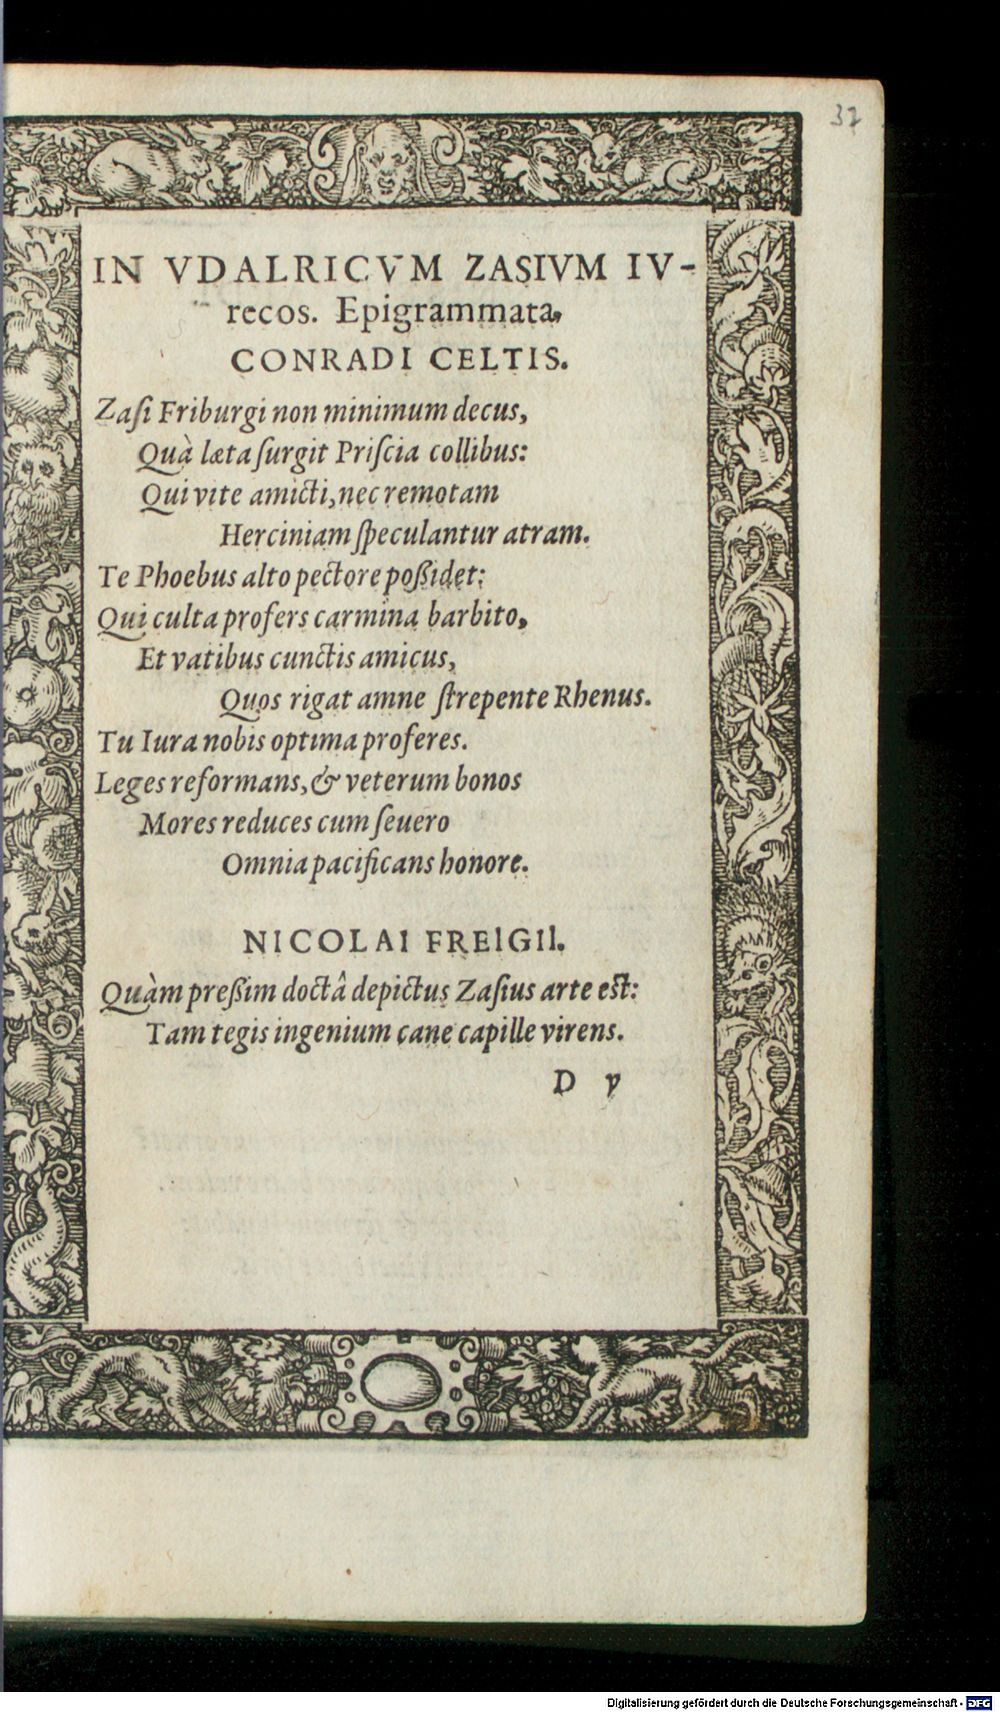 37
IN VDALRICVM ZASIVM IV-
recos. Epigrammata,
CONRADI CELTIS.
Zaſi Friburgi non minimum decus,
Quà læta ſurgit Priſcia collibus:
Qui vite amicti, nec remotam
Herciniam ſpeculantur atram.
Te Phoebus alto pectore poßidet:
Qui culta profers carmina barbito,
Et vatibus cunctis amicus,
Quos rigat amne ſtrepente Rhenus.
Tu Iura nobis optima proferes.
Leges reformans, & veterum bonos
Mores reduces cum ſeuero
Omnia pacificans honore.
NICOLAI FREIGII.
Quàm preßim doctâ depictus Zaſius arte est:
Tam tegis ingenium cane capille virens.
D v
Digitalisierung gefördert durch die Deutsche Forschungsgemeinschaft - DFG